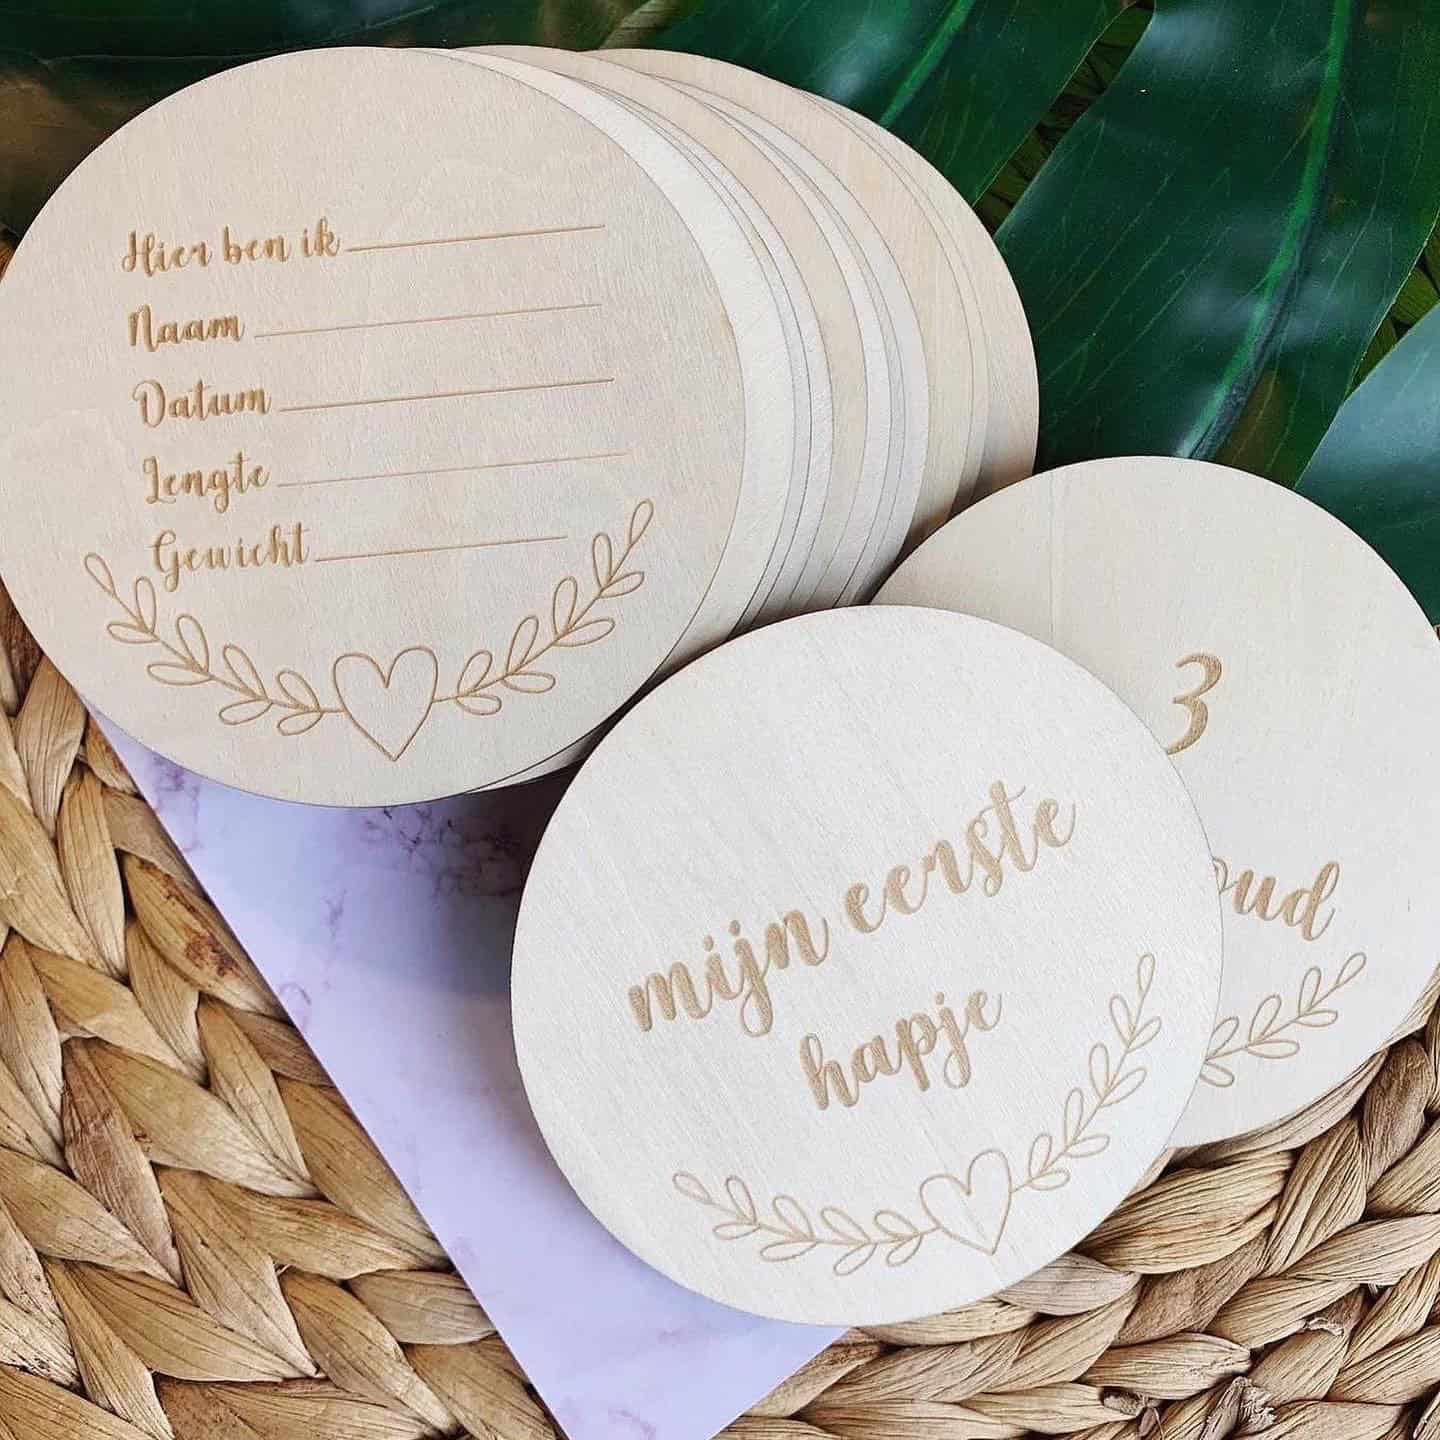 Hier ben ik
Naam
Datum
Lengte
Gewicht
3
oud
mijn eerste
hapje